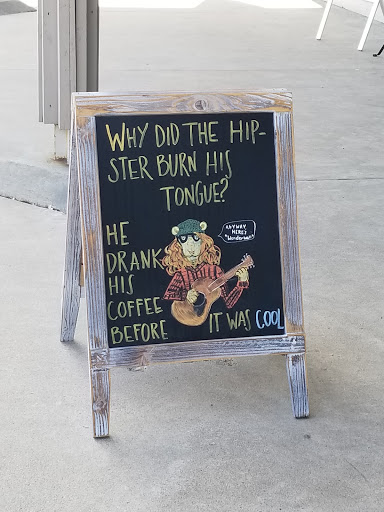 WHY DID THE HIP-
STER BURN HIS
TONGUE?
HE
DRANK
HIS
COFFEE
BEFORE IT WAS COOL
ANYWAY
HERE'S
"Wonderwall"